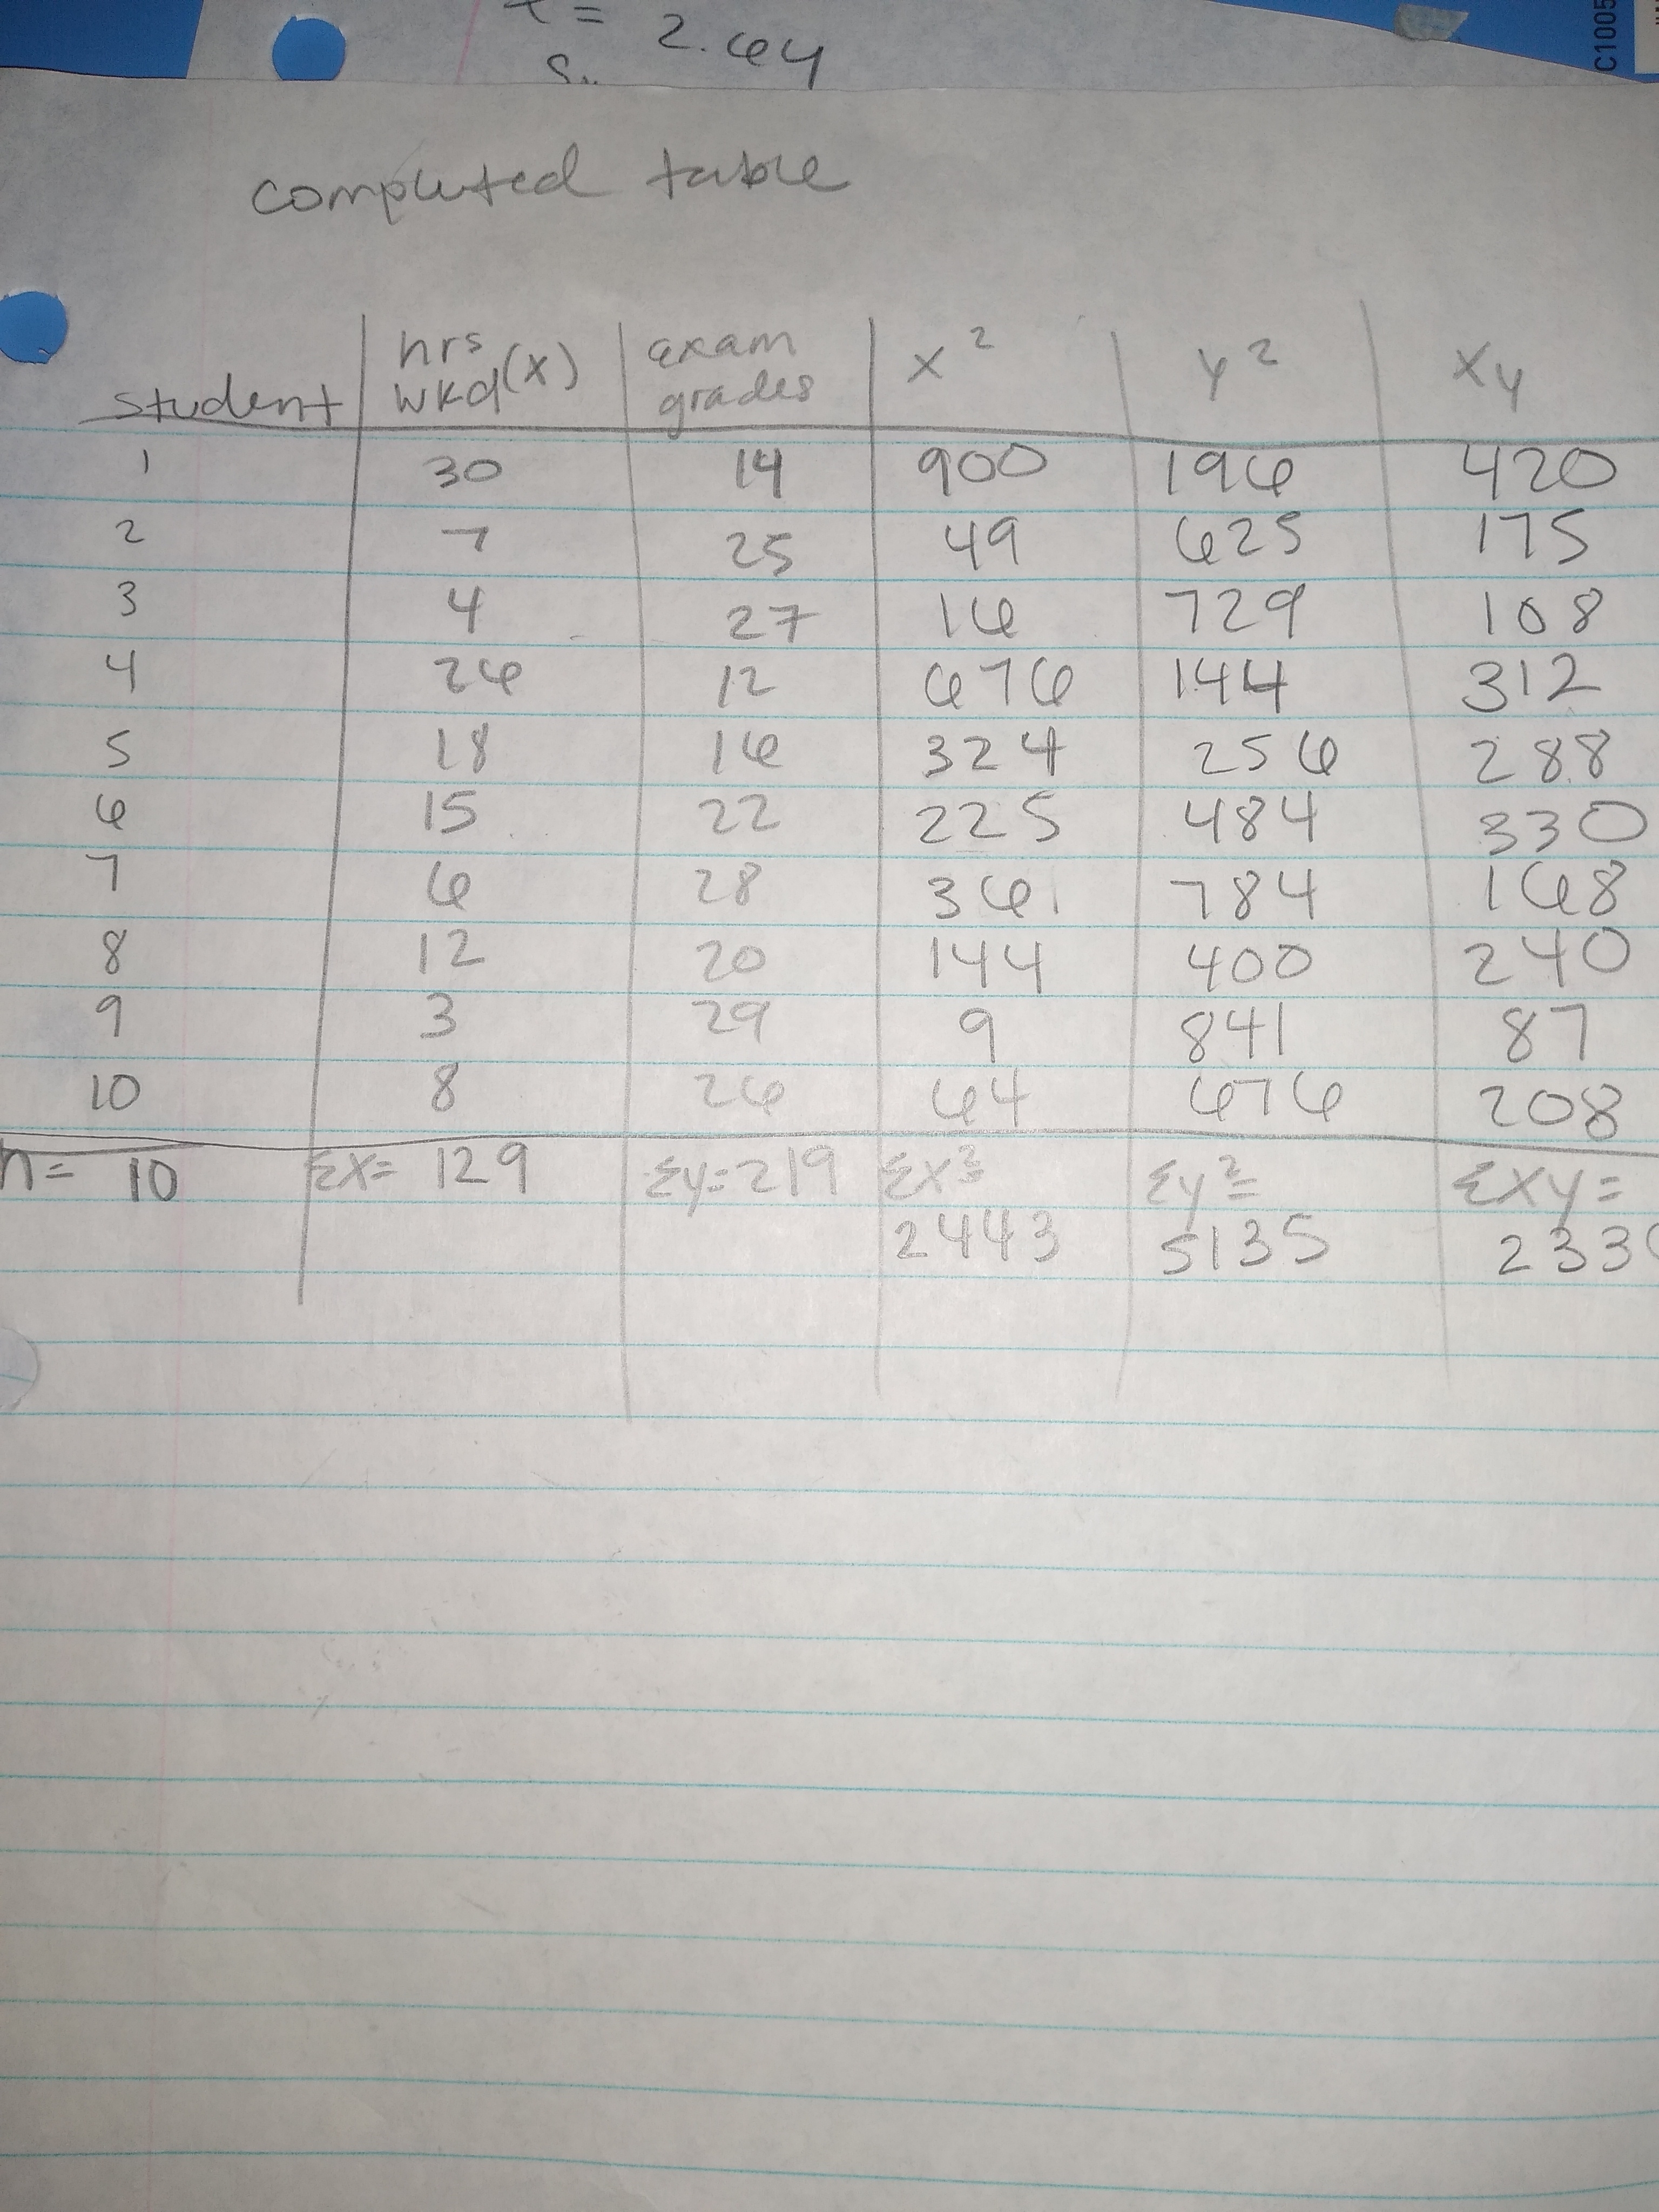 = 2.64
C1005
completed table
student hrs wkd(x) exam grades x² y² xy
1 30 14 900 196 420
2 7 25 49 625 175
3 4 27 16 729 108
4 26 12 676 144 312
5 18 16 324 256 288
6 15 22 225 484 330
7 6 28 36 784 168
8 12 20 144 400 240
9 3 29 9 841 87
10 8 26 64 676 208
n= 10 Σx= 129 Σy=219 Σx²= Σy²= Σxy=
2443 5135 233